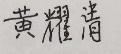 黄耀清